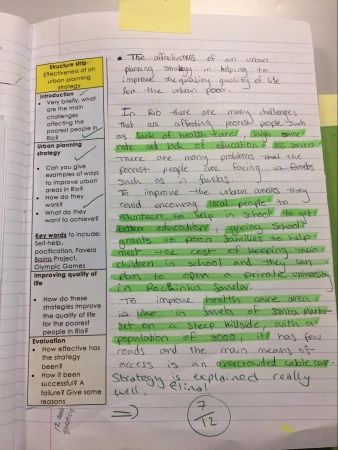 Structure strip-
Effectiveness of an
urban planning
strategy
Introduction
• Very briefly, what
are the main
challenges
affecting the
poorest people in
Rio?
Urban planning
strategy
• Can you give
examples of ways
to improve urban
areas in Rio?
• How do they
work?
• What do they
want to achieve?
Key words to include:
Self-help,
pacification, Favela
Bairro Project,
Olympic Games
Improving quality of
life
• How do these
strategies improve
the quality of life
for the poorest
people in Rio?
Evaluation
• How effective has
the strategy
been?
• How it been
successful? A
failure? Give some
reasons
• The effectiveness of an urban
planning strategy in helping to
improve the quality quality of life
for the urban poor.
In Rio there are many challenges
that are affecting poorest people such
as lack of health care, high crime
rate and lack of education
There are many problems that the
poorest people are facing in favelas
such as favelas.
To improve the urban areas they
could encourag local people to
volunteer to help in school to get
better education, giving school
grants to poor families to help
meet the cost of keeping their
children in school and they can
also to open a private university
in Rochinha favela.
To improve health care area
is like in favela of Santa Marta
set on a steep hillside, with a
population of 8000, it has few
roads and the main means of
access is an overcrowded cable car.
Strategy is explained really
well,
7
12